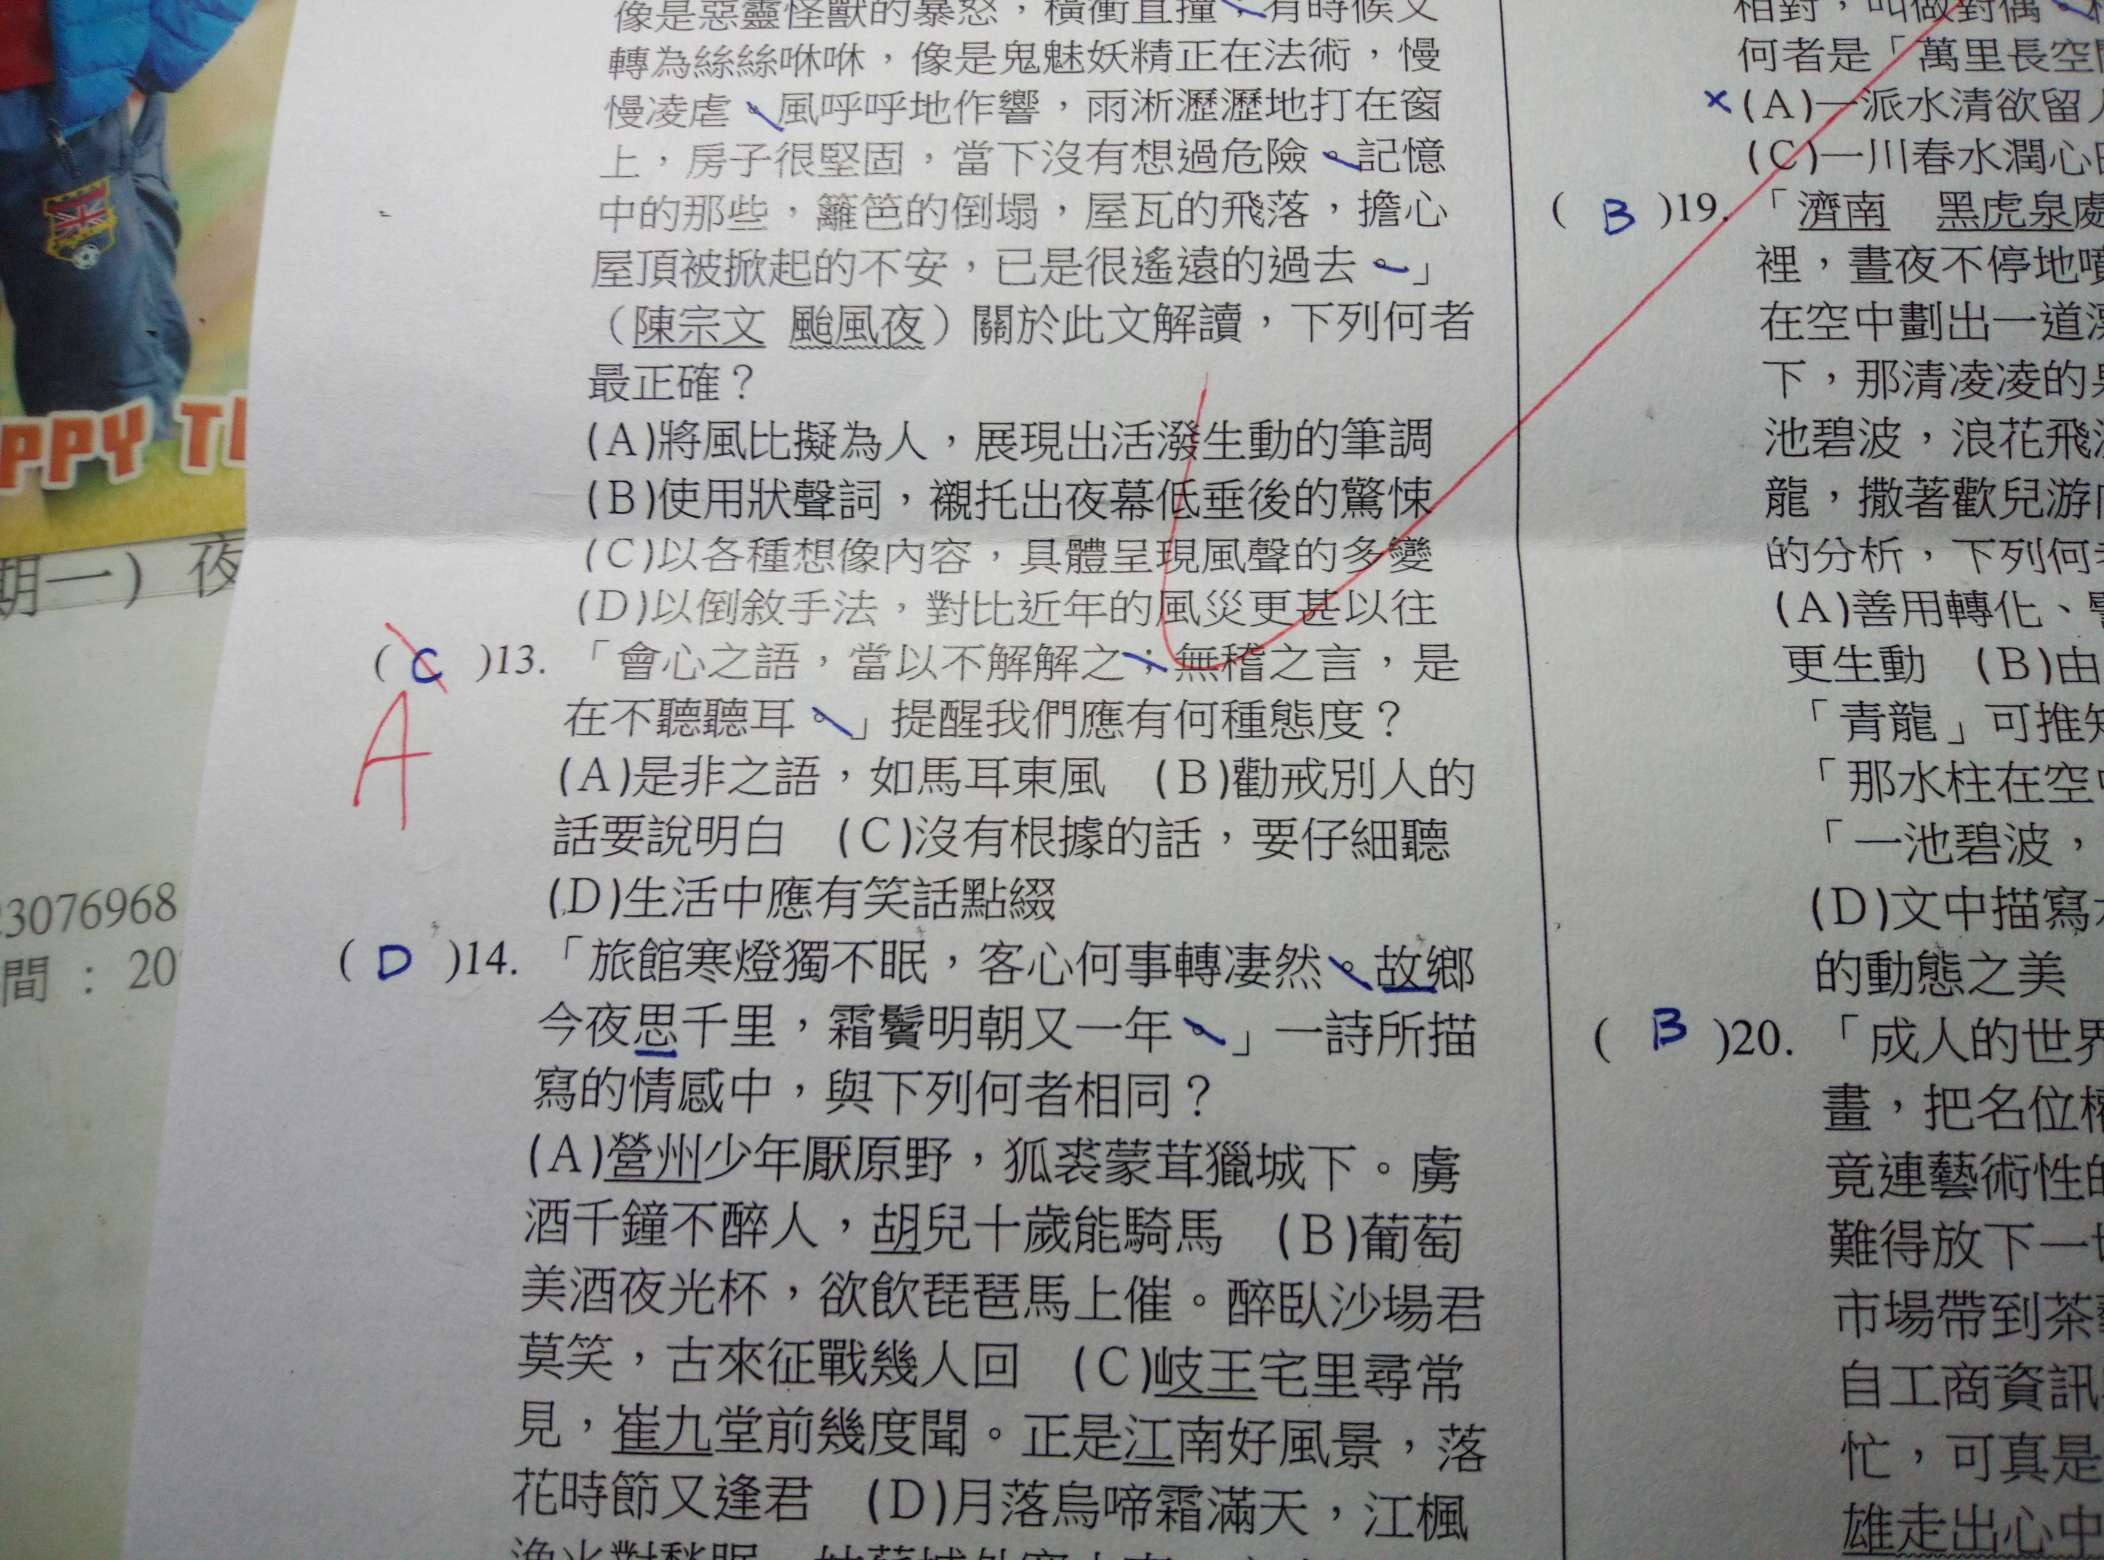 像是惡靈怪獸的暴怒，橫衝直撞；有時候又
轉為絲絲咻咻，像是鬼魅妖精正在法術，慢
慢凌虐。風呼呼地作響，雨淅瀝瀝地打在窗
上，房子很堅固，當下沒有想過危險。記憶
中的那些，籬笆的倒塌，屋瓦的飛落，擔心
屋頂被掀起的不安，已是很遙遠的過去。」
（陳宗文 颱風夜）關於此文解讀，下列何者
最正確？
(A)將風比擬為人，展現出活潑生動的筆調
(B)使用狀聲詞，襯托出夜幕低垂後的驚悚
(C)以各種想像內容，具體呈現風聲的多變
(D)以倒敘手法，對比近年的風災更甚以往
( C )13. 「會心之語，當以不解解之；無稽之言，是
A
在不聽聽耳。」提醒我們應有何種態度？
(A)是非之語，如馬耳東風 (B)勸戒別人的
話要說明白 (C)沒有根據的話，要仔細聽
(D)生活中應有笑話點綴
( D )14. 「旅館寒燈獨不眠，客心何事轉凄然。故鄉
今夜思千里，霜鬢明朝又一年。」一詩所描
寫的情感中，與下列何者相同？
(A)營州少年厭原野，狐裘蒙茸獵城下。虜
酒千鐘不醉人，胡兒十歲能騎馬 (B)葡萄
美酒夜光杯，欲飲琵琶馬上催。醉臥沙場君
莫笑，古來征戰幾人回 (C)岐王宅里尋常
見，崔九堂前幾度聞。正是江南好風景，落
花時節又逢君 (D)月落烏啼霜滿天，江楓
相對，叫做對偶。
何者是「萬里長空
×(A)一派水清欲留
(C)一川春水潤心
( B )19. 「濟南 黑虎泉處
裡，晝夜不停地噴
在空中劃出一道
下，那清凌凌的
池碧波，浪花飛
龍，撒著歡兒游
的分析，下列何
(A)善用轉化、
更生動 (B)由
「青龍」可推知
「那水柱在空
「一池碧波，
(D)文中描寫
的動態之美
( B )20. 「成人的世界
畫，把名位
竟連藝術性的
難得放下一切
市場帶到茶
自工商資訊
忙，可真是
雄走出心中
PPY T
期一）夜
23076968
間：20